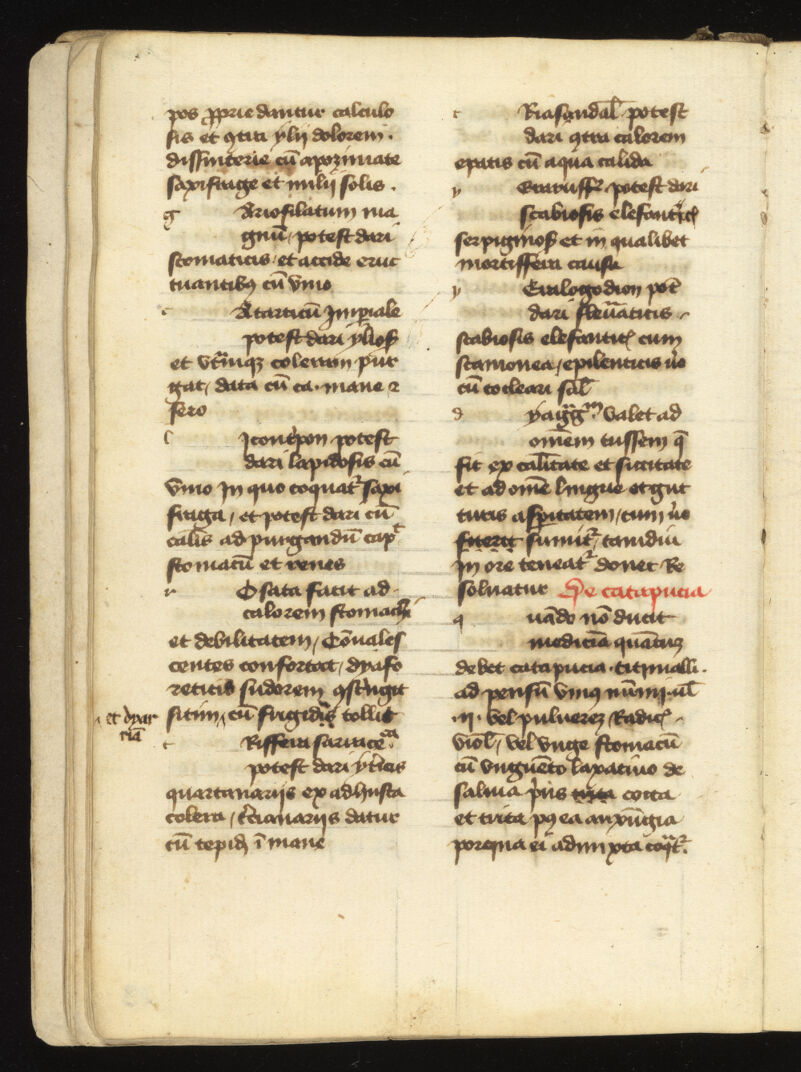 pos proprie dantur calculo
sis et contra ylii dolorem.
dissinterie cū apozimate
saxifrage et milii solis.
g ariofilatum ma
gnū potest dari
stomaticis et accide eruc
tuantibus cū vino
c atarticū Imperiale
potest dari
et utrumque coleram pur
gat, data cū ca. mane et
sero
l icontripon potest
dari lapidosis cū
vino in quo coquatur saxi
fraga, et potest dari cū
calis ad purgandū caput
stomacū et renes
r Osata facit ad
calorem stomachi
et debilitatem, Cōuales
centes confortat, dyafo
reticis sudorem constringit
sitim, cū frigidis tollit
et dyar
riā
t Riffera saracē
potest dari ytericis
quartanariis ex adhusta
colera, tercianariis datur
cū tepida ī mane
t Riasandal potest
dari contra calorem
epatis cū aqua calida
y potest dari
scabiosis elefanticis
serpiginosis et in qualibet
mortiffera causa
y Eralogodion pot
dari fleumaticis.
scabiosis elefanticis cum
scamonea, epilenticis vero
cū cocleari sal
d valet ad
omēm tussem que
fit ex caliditate et siccitate
et ad omē lingue et gut
turis aspritatem, cum vero
fuerit sumitur, tamdiu
in ore teneatur donec Re
soluatur De catapucia
q uando nō ducit
medicina quantum
debet catapucia. titimalli.
ad pensū unius nummi. ul
.ii. vel puluerez Radic.
viol, vel unge stomacū
cū unguēto laxatiuo de
saluia prius cocta
et trita postea anxungia
porcina ei admixta coquitur.